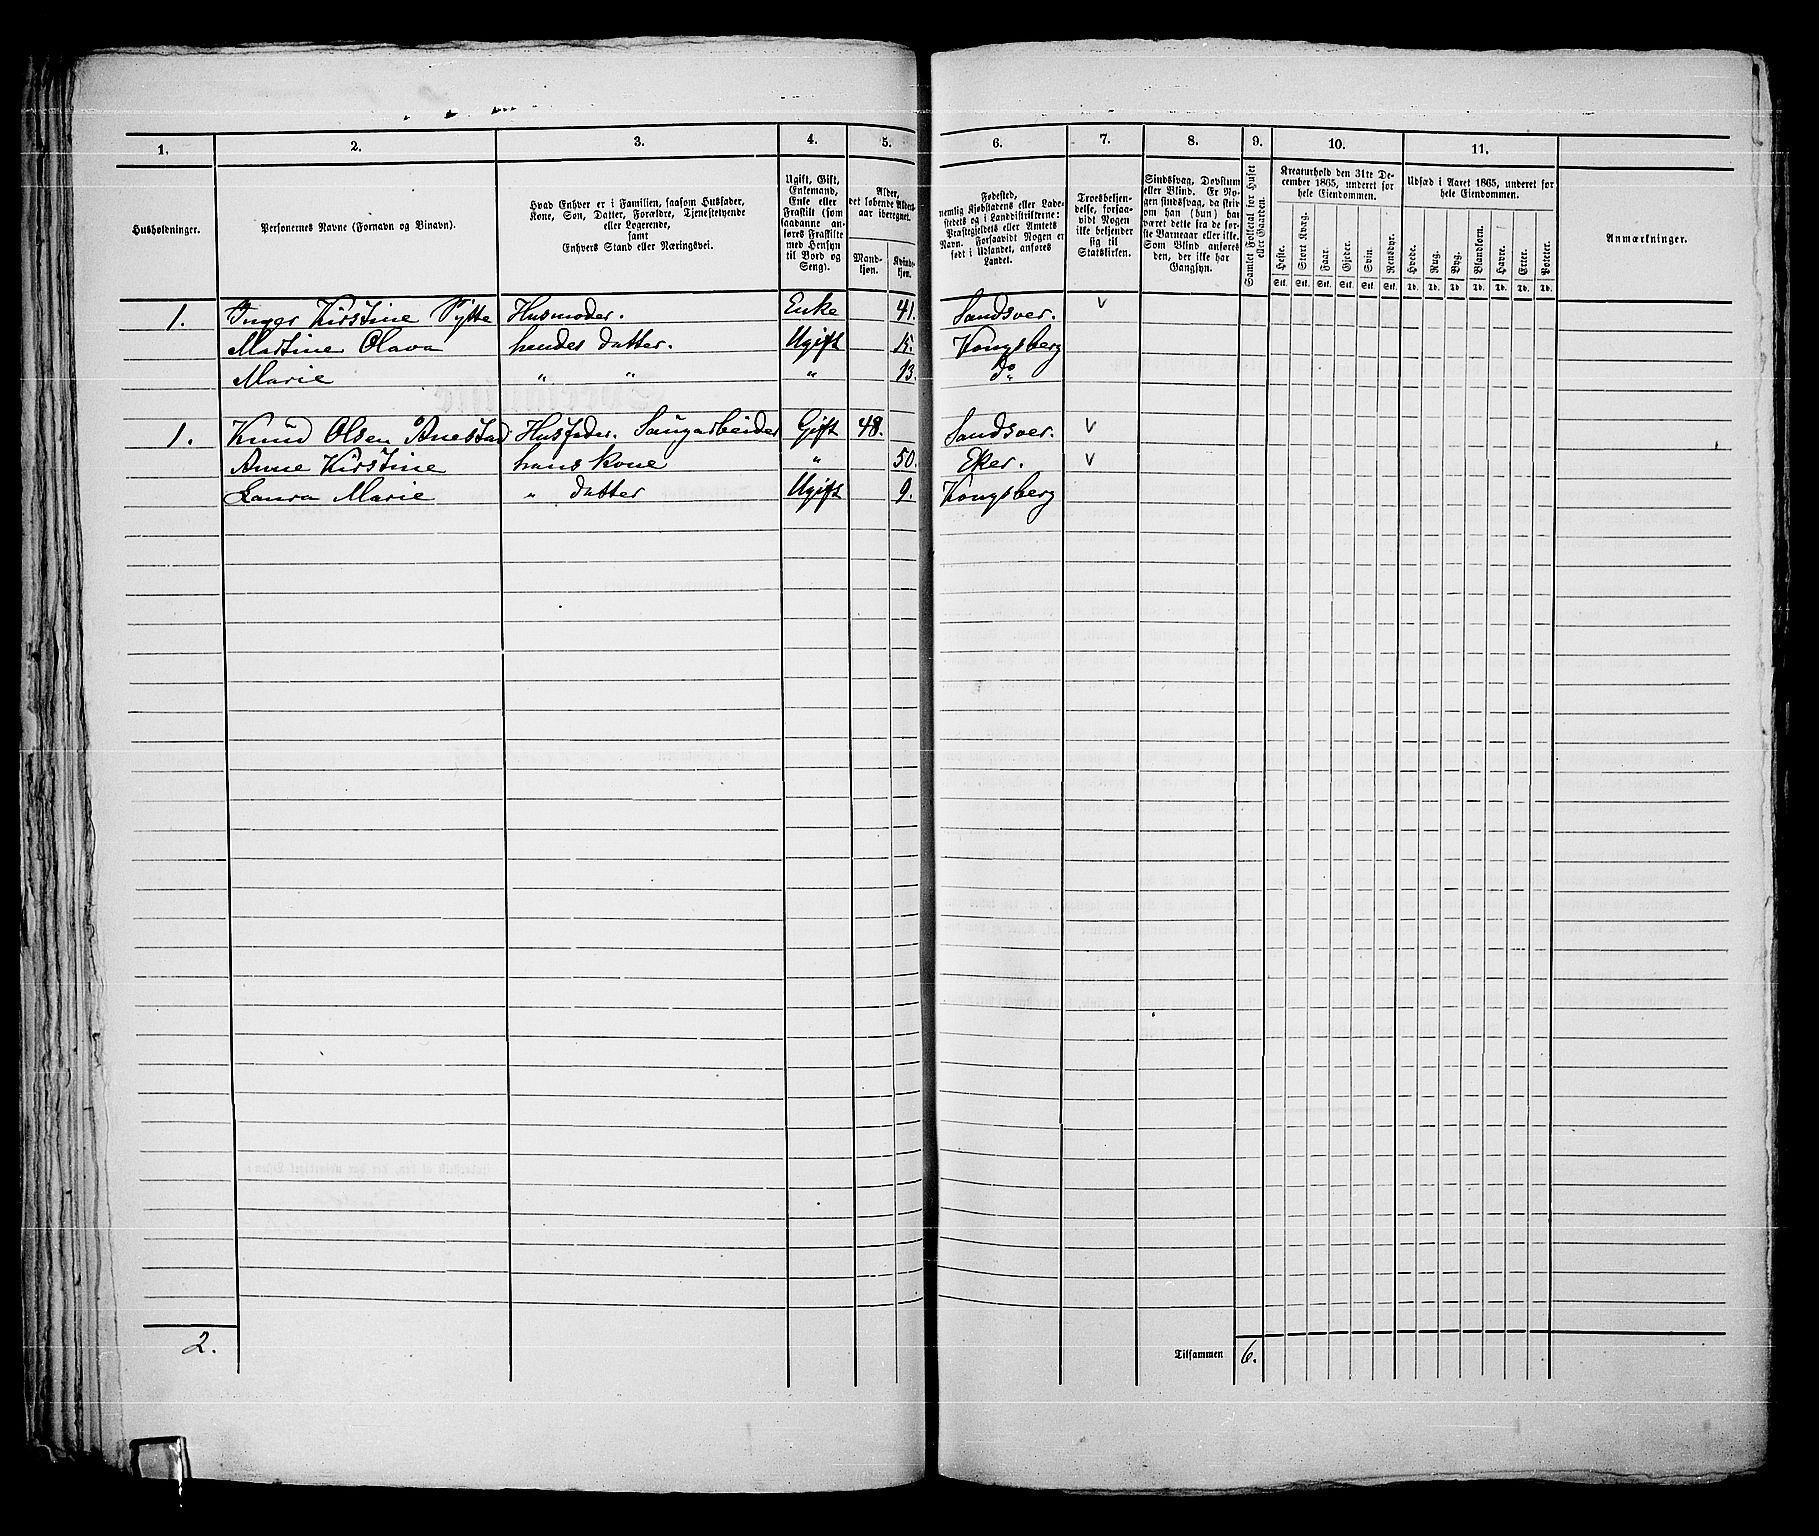 1. 2. 3. 4. 5. 6. 7. 8. 9. 10. 11.
Husholdninger.
Personernes Navne (Fornavn og Binavn).
Hvad Enhver er i Familien, saasom Husfader,
Kone, Søn, Datter, Forældre, Tjenestetyende
eller Logerende,
samt
Enhvers Stand eller Næringsvei.
Ugift, Gift,
Enkemand,
Enke eller
Fraskilt (som
saadanne an-
føres Fraskilte
med Hensyn
til Bord og
Seng).
Alder,
det løbende Alders-
aar iberegnet.
Mand-
kjøn.
Kvinde-
kjøn.
Fødested,
nemlig Kjøbstadens eller Lade-
stedets og i Landdistrikterne:
Præstegjeldets eller Amtets
Navn. Forsaavidt Nogen er
født i Udlandet, anføres
Landet.
Troesbekjen-
delse, forsaa-
vidt Nogen
ikke bekjender
sig til
Statskirken.
Sindssvag, Døvstum
eller Blind. Er No-
gen sindssvag, da skriv
om han (hun) har
været dette fra de før-
ste Barneaar eller ikke.
Som Blind anføres
den, der ikke har
Gangsyn.
Samlet Folketal for Huset
eller Gaarden.
Kreaturhold den 31te De-
cember 1865, underet for
hele Eiendommen.
Heste. Stort Kvæg. Faar. Gjeder. Svin. Rensdyr.
Stk. Stk. Stk. Stk. Stk. Stk.
Udsæd i Aaret 1865, underet for
hele Eiendommen.
Hvede. Rug. Byg. Blandkorn. Havre. Erter. Poteter.
Td. Td. Td. Td. Td. Td. Td.
Anmærkninger.
1. Inger Kirstine Husmoder. Enke 41. Sandsver. v
Martine Olava hendes datter. Ugift 15. Kongsberg
Marie " " " 13. do
1. Knud Olsen Husfader. Gift 48. Sandsver. v
Anne Kirstine hans kone " 50. Eker. v
Laura Marie " datter Ugift 9. Kongsberg
2. Tilsammen 6.